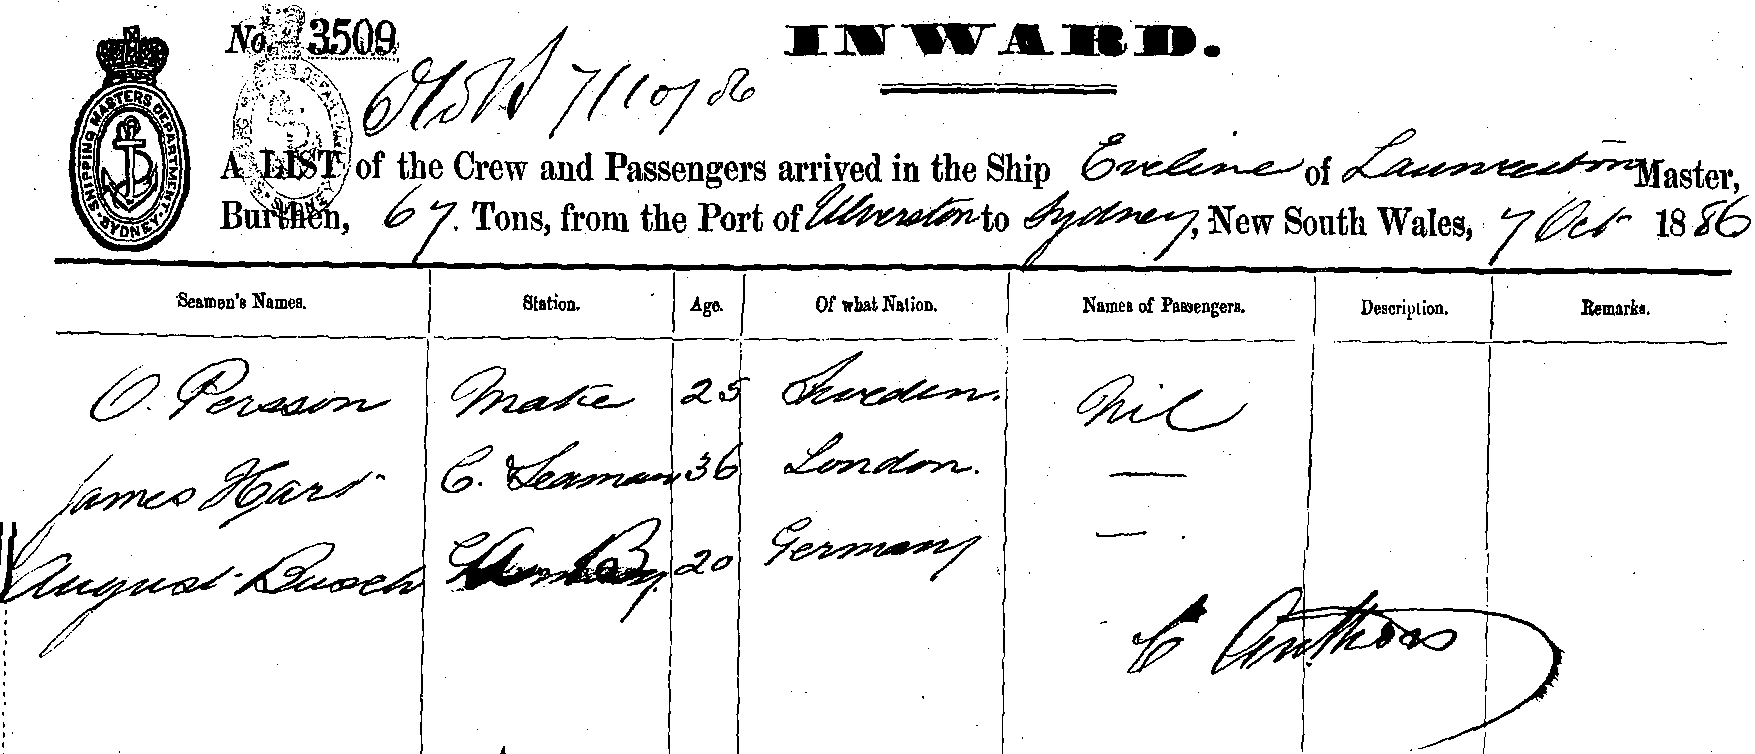 No. 3509
INWARD.
7/10/86
SHIPPING MASTERS DEPARTMENT SYDNEY
A LIST of the Crew and Passengers arrived in the Ship Eveline of Launceston Master,
Burthen, 67. Tons, from the Port of Ulverston to Sydney, New South Wales, 7 Oct 1886
Seamen's Names. Station. Age. Of what Nation. Names of Passengers. Description. Remarks.
O. Persson Mate 25 Sweden. Nil
James Hart C. Seaman 36 London. —
August Busch 20 Germany —
C